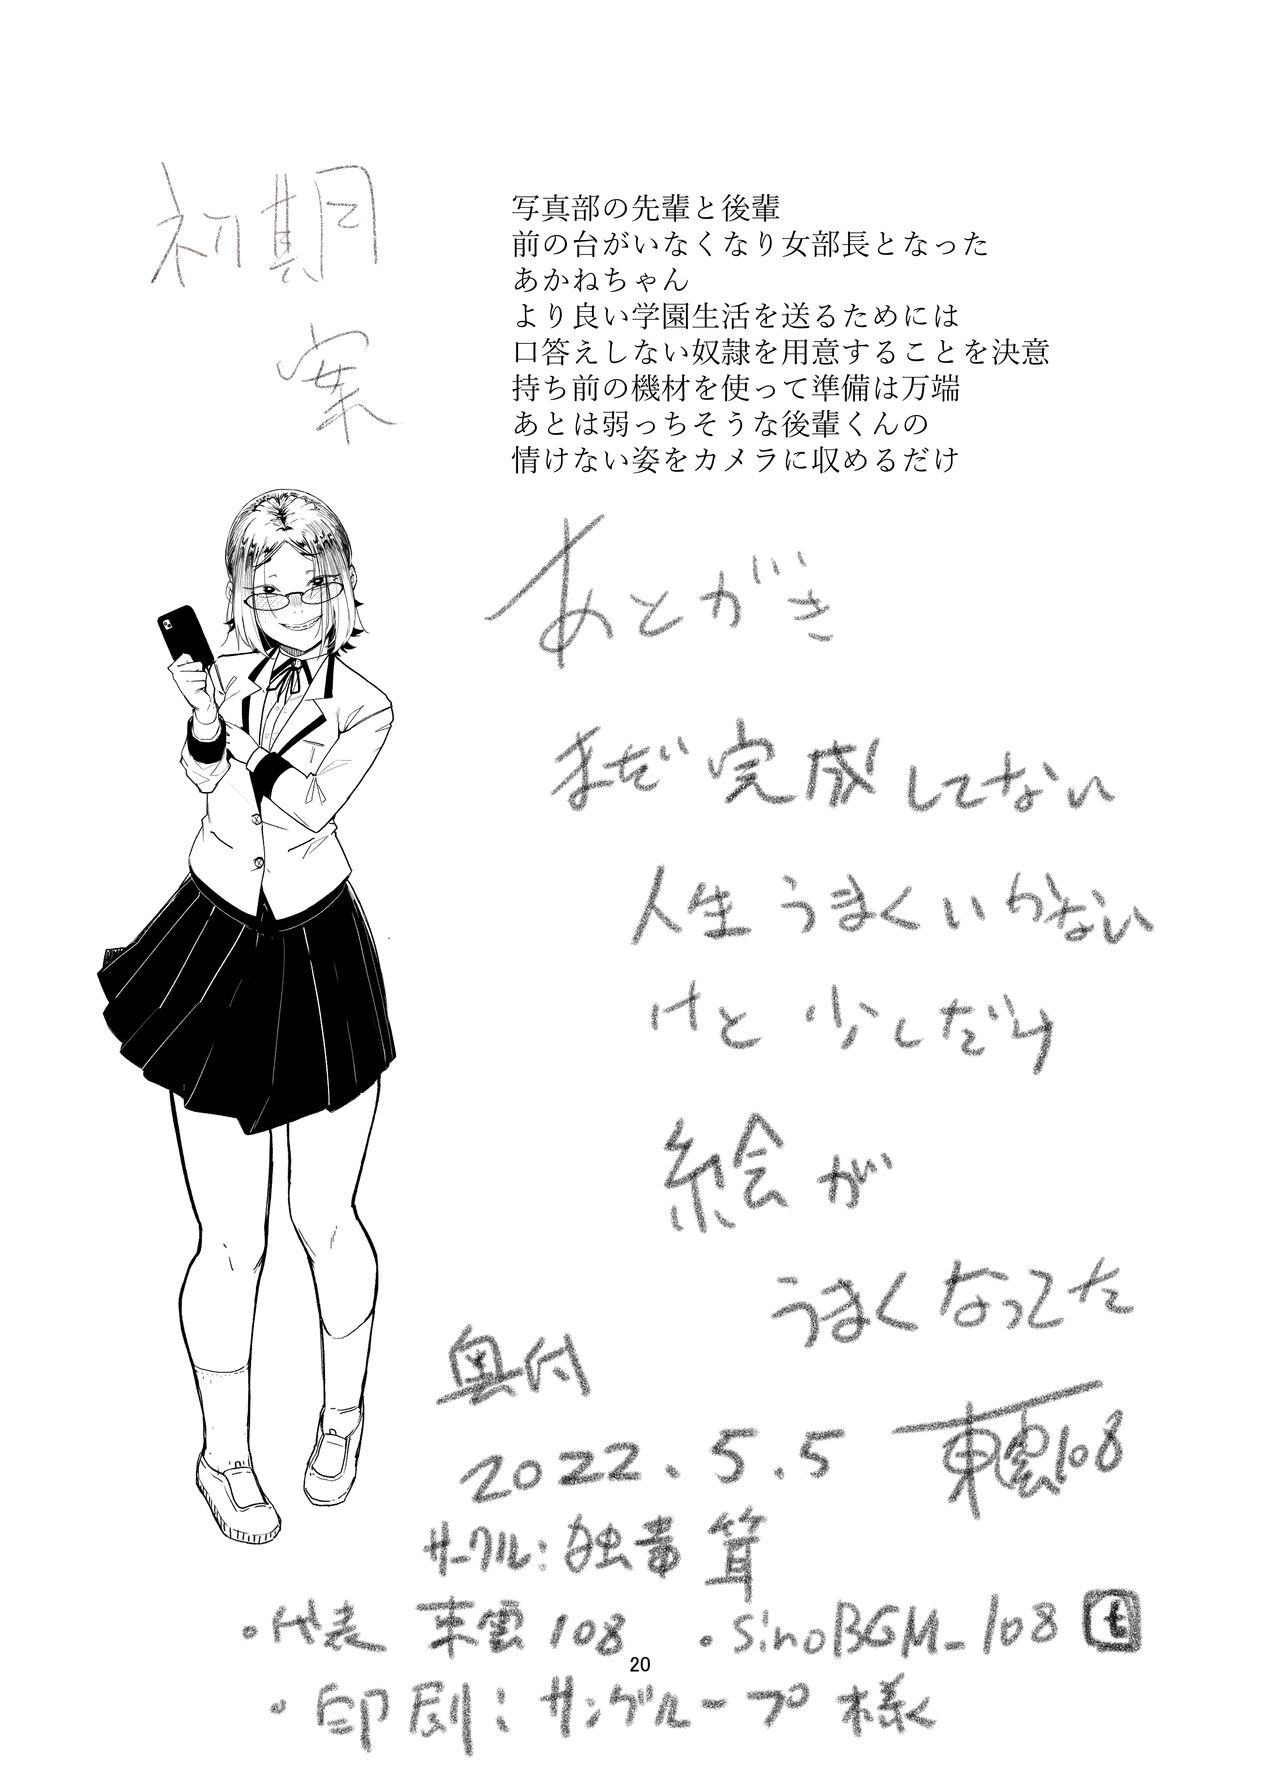 初期
案
写真部の先輩と後輩
前の台がいなくなり女部長となった
あかねちゃん
より良い学園生活を送るためには
口答えしない奴隷を用意することを決意
持ち前の機材を使って準備は万端
あとは弱っちそうな後輩くんの
情けない姿をカメラに収めるだけ
あとがき
まだ完成してない
人生うまくいかない
けど少しだけ
絵が
うまくなってた
東雲108
奥付
2022.5.5
サークル:独毒茸
・代表 東雲108 ・SinoBGM_108 t
・印刷:サングループ様
20